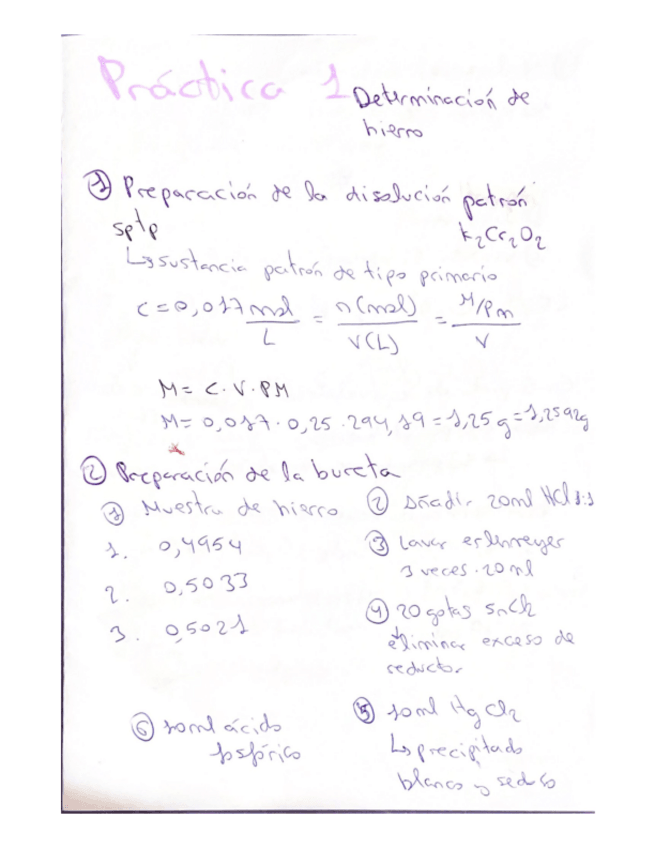 Práctica 1 Determinación de
hierro
① Preparación de la disolución patrón
sptp K₂Cr₂O₂
↳ sustancia patrón de tipo primario
C = 0,017 mol/L = n(mol)/V(L) = M/Pm/V
M = C · V · PM
M = 0,017 · 0,25 · 294,19 = 1,25 g = 1,2592g
② Preparación de la bureta
① Muestra de hierro
1. 0,4954
2. 0,5033
3. 0,5021
② Añadir 20ml HCl 1:1
③ Lavar erlenmeyer
3 veces · 20 ml
④ 20 gotas SnCl2
eliminar exceso de
reductor
⑤ 10ml HgCl2
↳ precipitado
blanco y sedoso
⑥ 10ml ácido
fosfórico